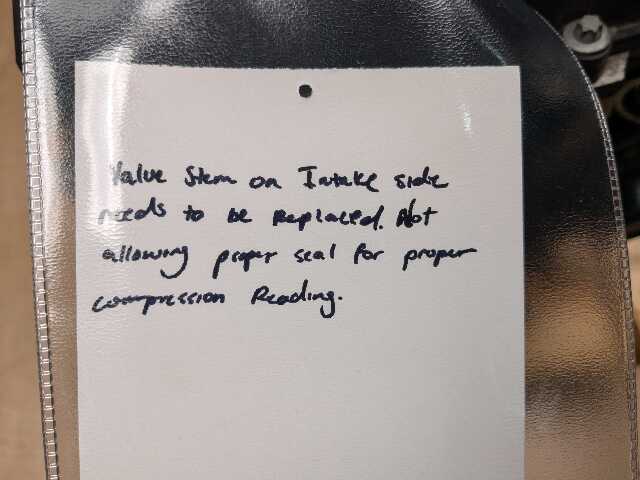 Valve Stem on Intake side
needs to be Replaced. Not
allowing proper seal for proper
compression Reading.